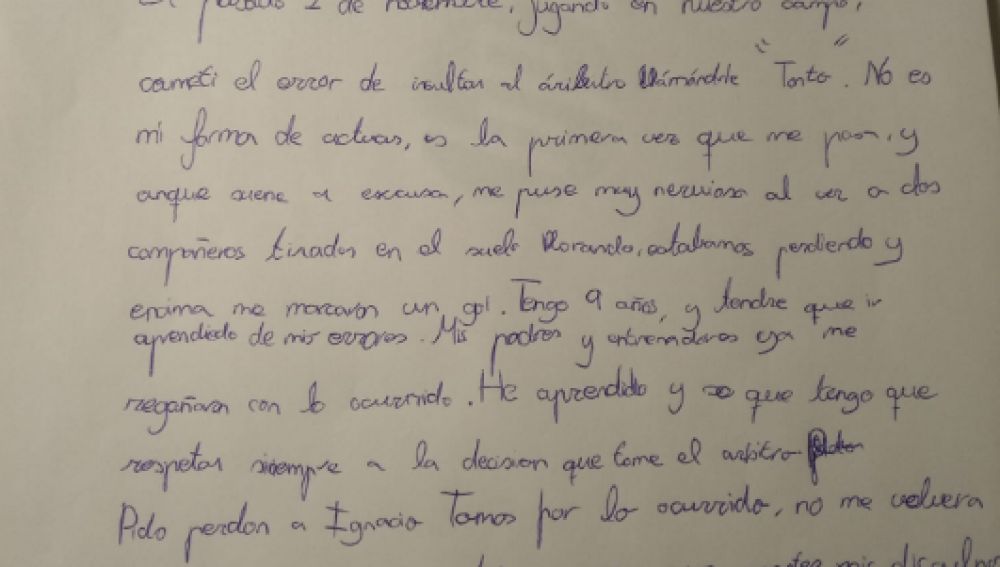 El pasado 2 de noviembre, jugando en nuestro campo,
cometi el error de insultar al áribitro llámándole "Tonto". No es
mi forma de actuar, es la primera vez que me pasa, y
anque suene a excusa, me puse muy nervioso al ver a dos
compañeros tirados en el suelo llorando, estabamos perdiendo y
encima me marcaron un gol. Tengo 9 años, y tendre que ir
aprendiedo de mis errores. Mis padres y entrenadores ya me
regañaron con lo ocurrido. He aprendido y se que tengo que
respetar siempre a la decision que tome el arbitro
Pido perdon a Ignacio Tamos por lo ocurrido, no me volvera
mis disculpas